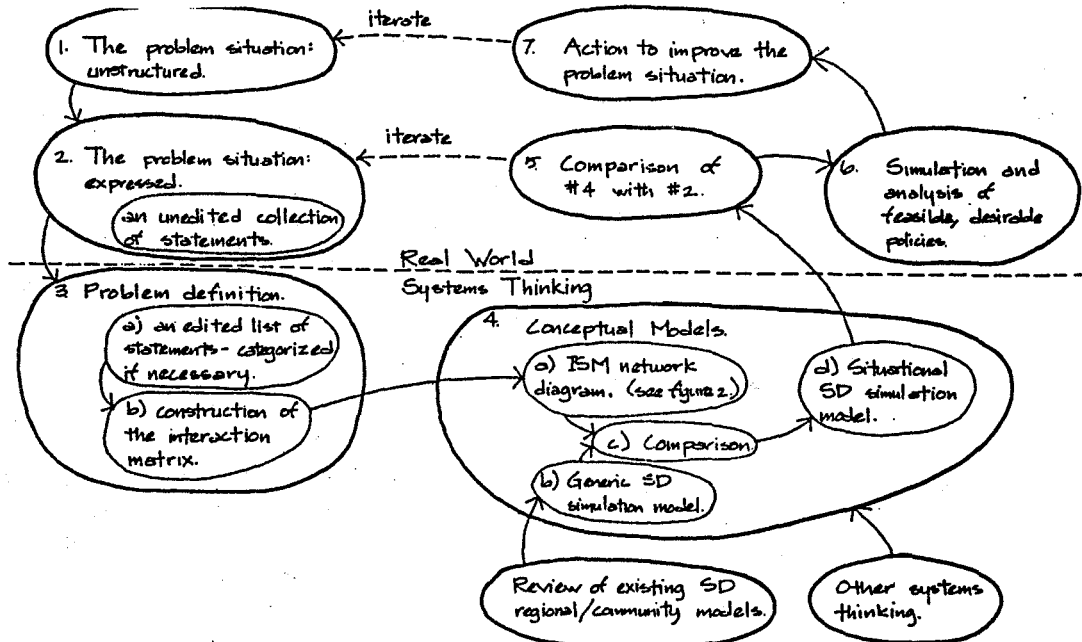 iterate
1. The problem situation:
unstructured.
7. Action to improve the
problem situation.
iterate
2. The problem situation:
expressed.
an unedited collection
of statements.
5. Comparison of
#4 with #2.
6. Simulation and
analysis of
feasible, desirable
policies.
Real World
Systems Thinking
3. Problem definition.
a) an edited list of
statements - categorized
if necessary.
b) construction of
the interaction
matrix.
4. Conceptual Models.
a) ISM network
diagram. (see figure 2.)
c) Comparison.
b) Generic SD
simulation model.
d) Situational
SD simulation
model.
Review of existing SD
regional/community models.
Other systems
thinking.